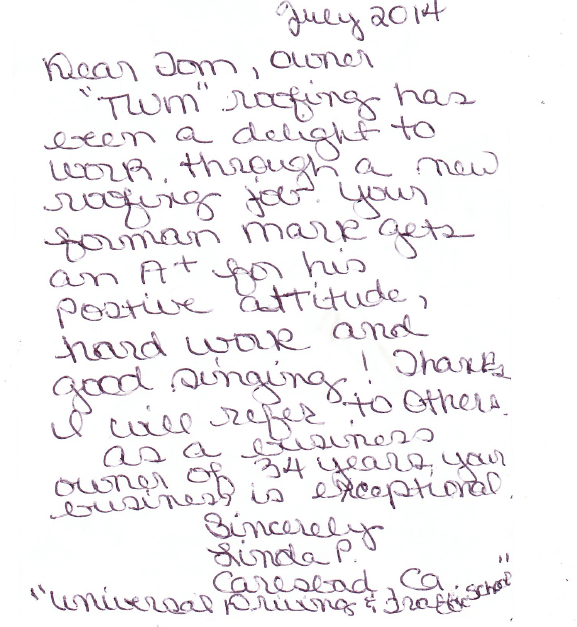 July 2014
Dear Tom, owner
"TWM" roofing has
been a delight to
work through a new
roofing job. your
forman mark gets
an A+ for his
postive attitude,
hard work and
good singing! Thanks
I will refer to others.
as a business
owner of 34 years, your
business is exceptional.
Sincerely
Linda P.
Carlsbad, Ca.
"Universal Driving & Traffic School"